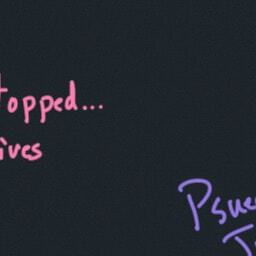 topped...
ives
Psue